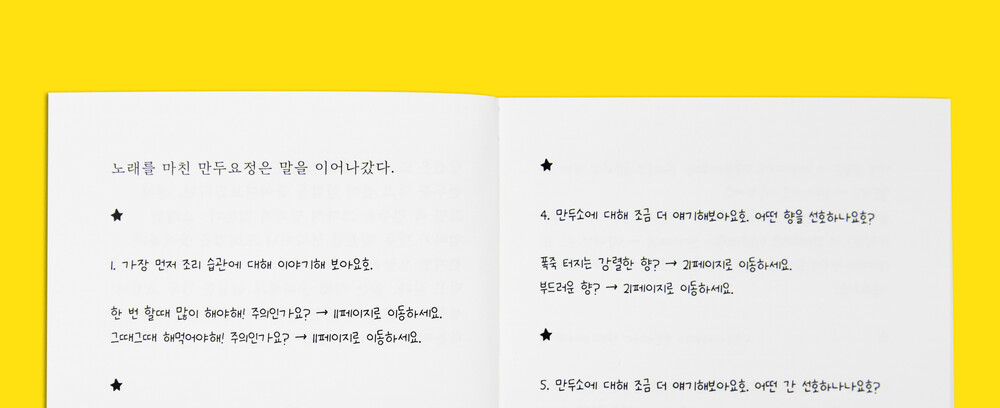 노래를 마친 만두요정은 말을 이어나갔다.
★
1. 가장 먼저 조리 습관에 대해 이야기해 보아요호.
한 번 할때 많이 해야해! 주의인가요? → 11페이지로 이동하세요.
그때그때 해먹어야해! 주의인가요? → 11페이지로 이동하세요.
★
★
4. 만두소에 대해 조금 더 얘기해보아요호. 어떤 향을 선호하나요호?
폭죽 터지는 강렬한 향? → 21페이지로 이동하세요.
부드러운 향? → 21페이지로 이동하세요.
★
5. 만두소에 대해 조금 더 얘기해보아요호. 어떤 간 선호하나나요호?